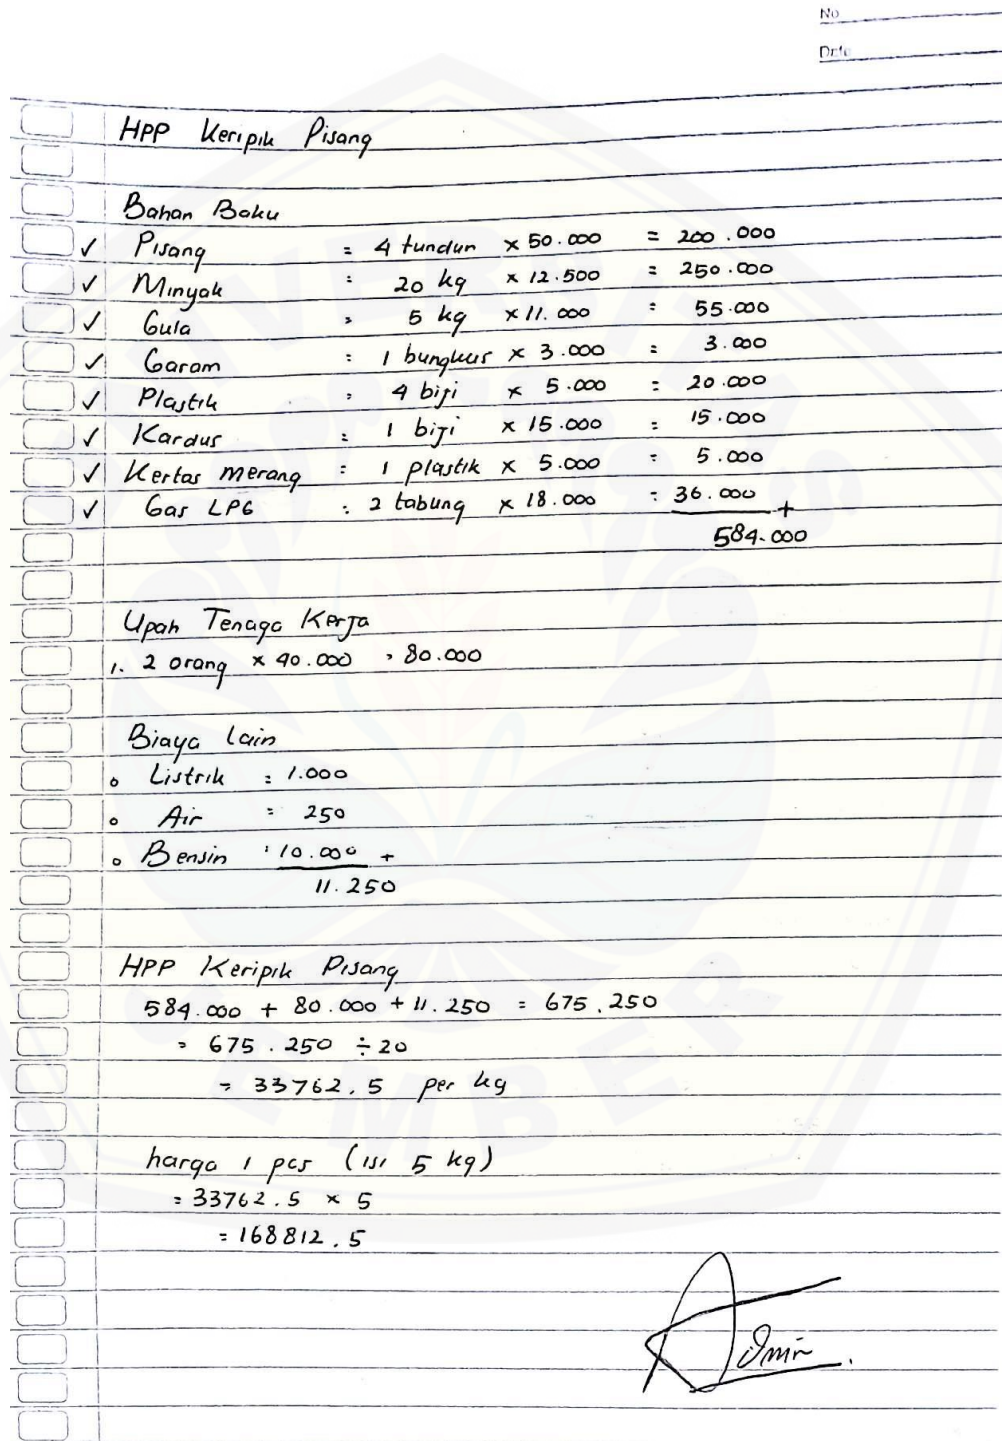 No
Date
HPP Keripik Pisang
Bahan Baku
✓ Pisang = 4 tundun × 50.000 = 200.000
✓ Minyak : 20 kg × 12.500 = 250.000
✓ Gula = 5 kg × 11.000 : 55.000
✓ Garam : 1 bungkus × 3.000 : 3.000
✓ Plastik : 4 biji × 5.000 : 20.000
✓ Kardus : 1 biji × 15.000 : 15.000
✓ Kertas merang : 1 plastik × 5.000 : 5.000
✓ Gas LPG : 2 tabung × 18.000 : 36.000 +
584.000
Upah Tenaga Kerja
1. 2 orang × 40.000 = 80.000
Biaya lain
o Listrik : 1.000
o Air : 250
o Bensin : 10.000 +
11.250
HPP Keripik Pisang
584.000 + 80.000 + 11.250 = 675.250
= 675.250 ÷ 20
= 33762.5 per kg
harga 1 pcs (isi 5 kg)
= 33762.5 × 5
= 168812.5
UNIVERSITAS
JEMBER